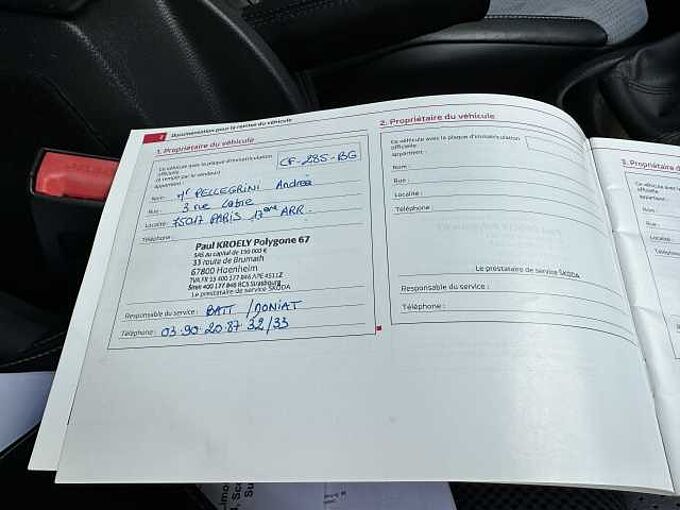 2 Documentation pour la remise du véhicule
1. Propriétaire du véhicule
Ce véhicule avec la plaque d'immatriculation
officielle
(à remplir par le vendeur)
CF-285-BG
appartient :
Nom : Mr PELLEGRINI Andrea
Rue : 3 rue
Localité : 75017 PARIS 17ème ARR.
Téléphone :
Paul KROELY Polygone 67
SAS au capital de 150 000 €
33 route de Brumath
67800 Hoenheim
TVA.FR 15 400 177 846 APE 4511Z
Siret 400 177 846 RCS Strasbourg
Le prestataire de service ŠKODA
Responsable du service : BATT / MONIAT
Téléphone : 03.90.20.87 32/33
2. Propriétaire du véhicule
Ce véhicule avec la plaque d'immatriculation
officielle
appartient :
Nom :
Rue :
Localité :
Téléphone :
Le prestataire de service ŠKODA
Responsable du service :
Téléphone :
3. Propriétaire d
Ce véhicule avec la
officielle
appartient :
Nom :
Rue :
Localité
Téléphone
Respons
Téléph